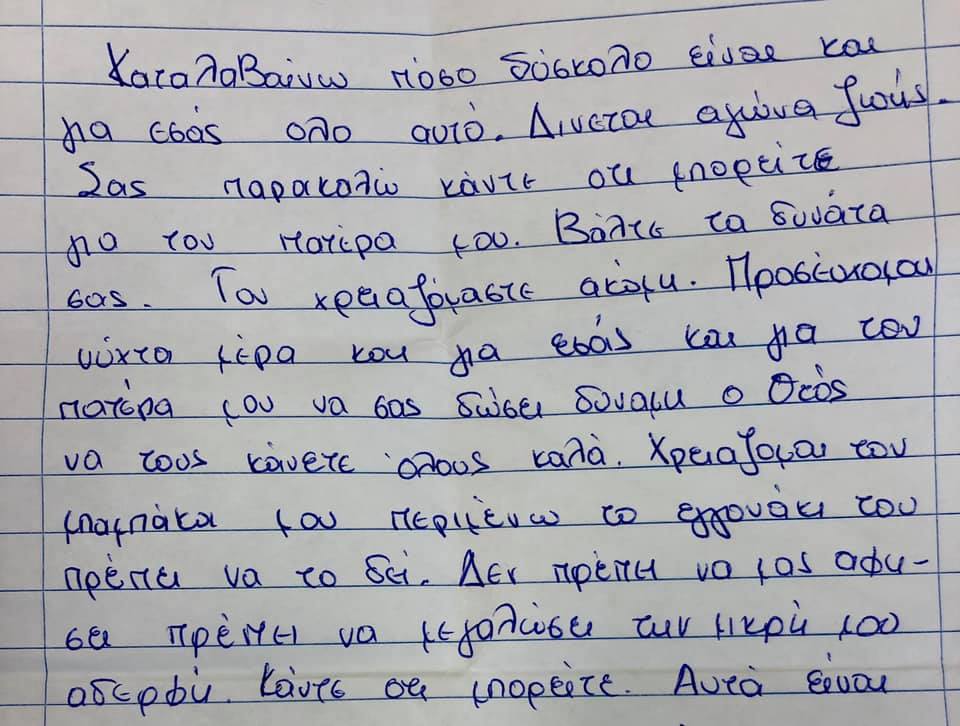 Καταλαβαίνω πόσο δύσκολο είναι και
για εσάς ολο αυτό. Δινεται αγώνα ζωής.
Σας παρακολώ κάντε οτι μπορείτε
για τον πατέρα μου. Βάλτε τα δυνάτα
σας. Τον χρειαζόμαστε ακόμη. Προσέυχομαι
νύχτα μέρα και για εσάς και για τον
πατέρα μου να σας δώσει δυναμη ο Θεός
να τους κάνετε όλους καλά. Χρειαζομαι τον
μπαμπάκα μου περιμένω το εγγονάκι του
πρέπει να το δεί. Δεν πρέπει να μας αφη-
σει πρέπει να μεγαλώσει την μικρή μου
αδερφή. Κάντε οτι μπορείτε. Αυτά είναι